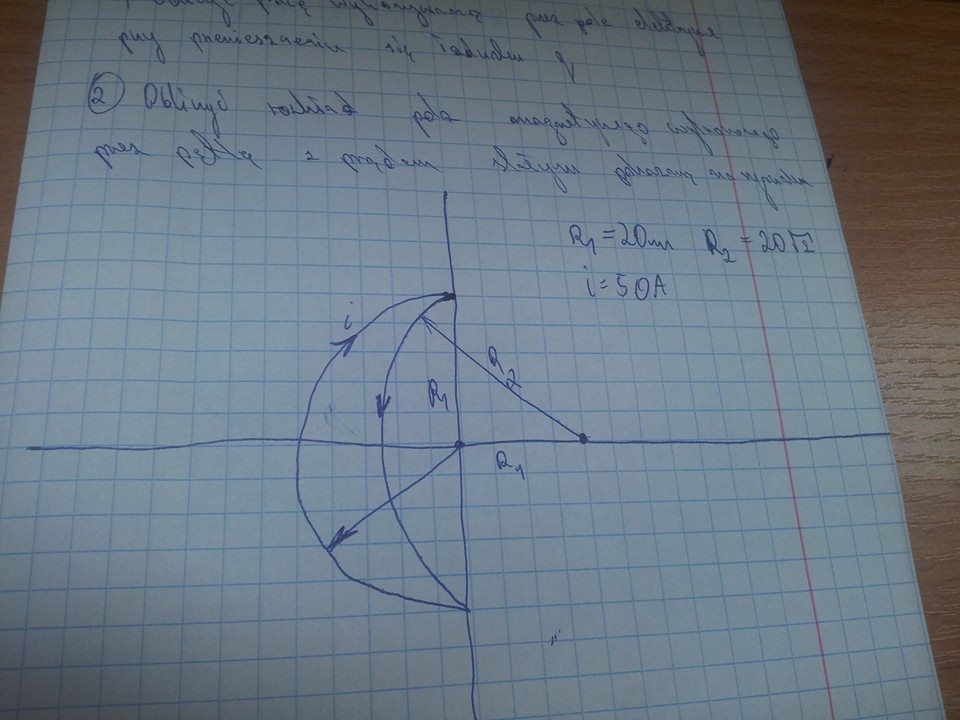 pracę wykonywaną przez pole
przy przemieszczeniu się ładunku q
2 Obliczyć rozkład pola magnetycznego wytworzonego
przez pętlę z prądem którym pokazaną na rysunku
R₁ = 20mm R₂ = 20√2
i = 50A
i
R₂
R₁
R₁